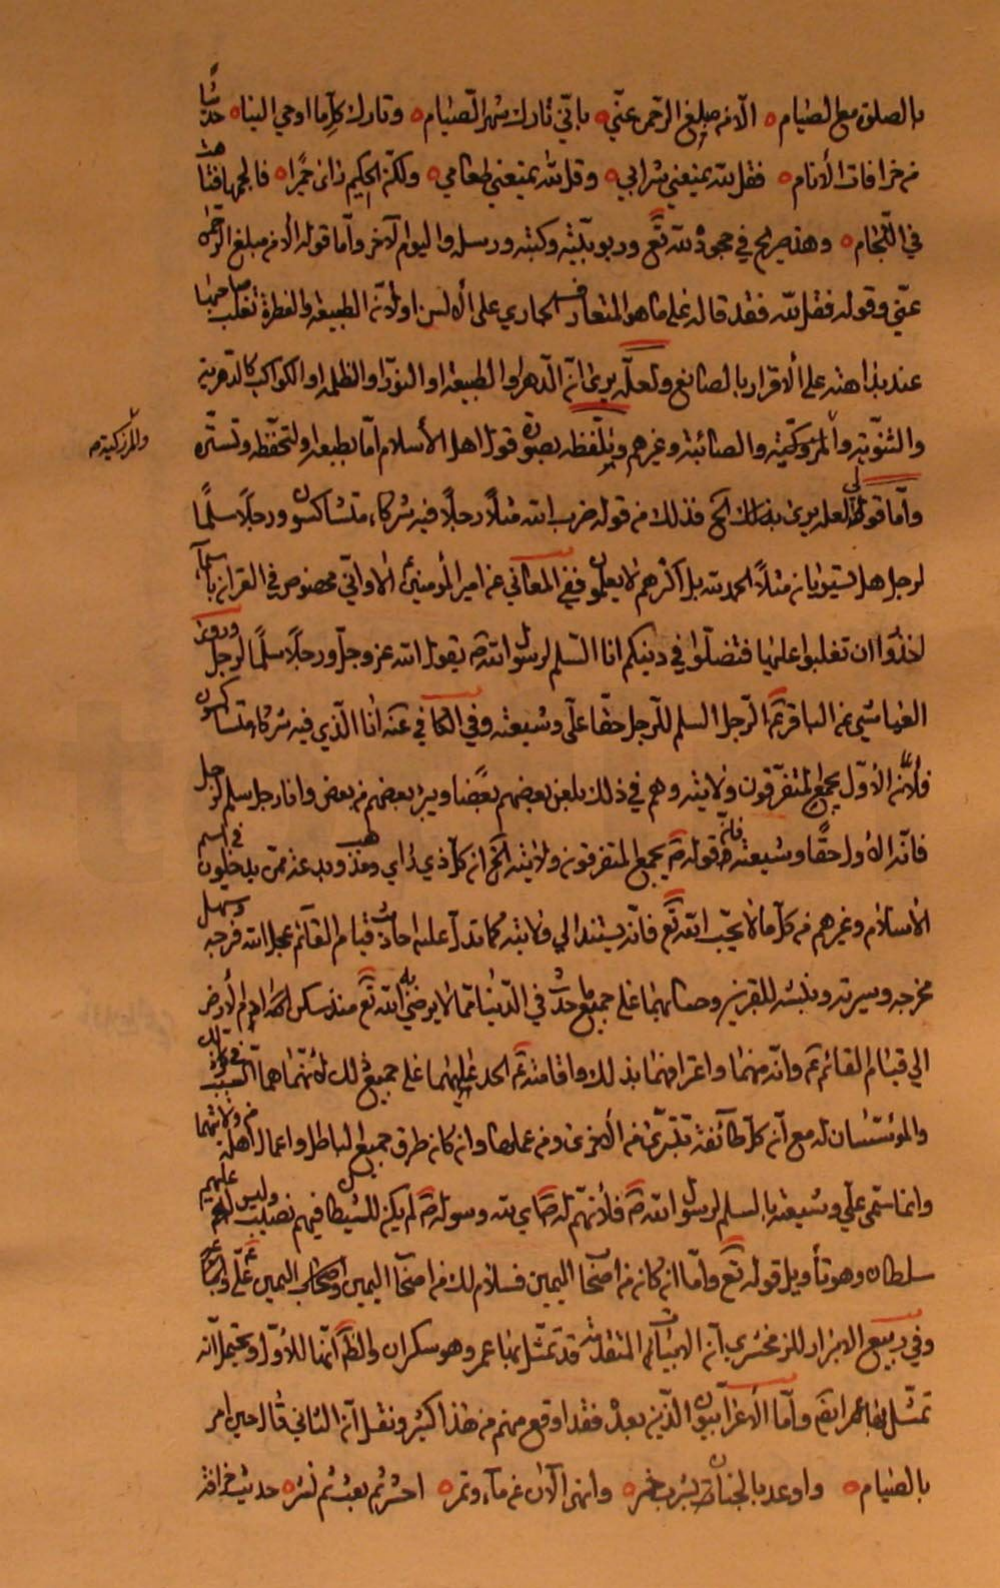 بالصلوة مع الصيام ه الا من مبلغ الرحمن عنّي ه باني تارك شهر الصيام ه وتارك كلّ ما اوحي الينا ه حديثا
من خرافات الأنام ه فقل لله يمنعني شرابي ه وقل لله يمنعني طعامي ه ولكنّ الحكيم رأى حميرا ه فالجمها فتاهت
في اللّجام ه وهذه صريح في جحوده لله تع وربوبيّته وكتبه ورسله واليوم الآخر وأما قوله ألا من مبلغ الرحمن
عنّي وقوله فقل لله فقد قاله على ما هو المتعارف الجاري على الألسن او لأنّ الطبيعة والفطرة تغلب صاحبها
عند بداهته على الاقرار بالصانع ولعلّه يرى انّ الدّهر او الطبيعة او النّور او الظلمة او الكواكب كالدّهرية
والثنّوية والمزدكيّة والصائبة وغيرهم وتلفّظه بصورة قول اهل الأسلام امّا بطبعه او لتحفّظه وتستّره
والمزدكية
وأمّا قوله لعله يرى بذلك الخ فذلك من قوله ضرب الله مثلاً رجلاً فيه شركاء متشاكسون ورجلاً سلمًا
لرجل هل يستويان مثلاً الحمد لله بل اكثرهم لا يعلمون ففي المعاني عن امير المؤمنين الا واني مخصوص في القران باسماء
احذروا ان تغلبوا عليها فتضلّوا في دينكم انا السّلم لرسول الله ص يقول الله عز وجلّ ورجلاً سلمًا لرجل وروى
العياشي عن الباقر ع الرّجل السلم للرّجل حقّا علّي وشيعته وفي الكافي عنه أمّا الّذي فيه شركاء متشاكسون
فلأنّ الأوّل يجمع المتفرّقون ولايته وهم في ذلك يلعن بعضهم بعضا ويبرء بعضهم من بعض وامّا رجل سلم لرجل
فانّه الاول حقّا وشيعته قوله ع يجمع المتفرقون ولايته الخ ان كلّ ذي رأي ومذهب وبدعة ممّن يدخلون في اسم
الأسلام وغيرهم من كلّ ما لا يحبّ الله تع فانّه يستند الي ولايته كما تدلّ عليه احاديث قيام القائم عجل الله فرجه وسهل
مخرجه وسيرته ونبشه للقبرين وحسابهما على جميع ما حدث في الدّنيا ممّا لا يرضي به الله تع منذ سكن ادم الأرض
الي قيام القائم ع وانّه منهما واعترافهما بذلك واقامته ع الحد عليهما على جميع ذلك لأنّهما هما السّبب في كلّ ذلك
والمؤسّسان له مع انّ كلّ طائفة تتبرّئ من الاخرى ومن عملها وان كان طرق جميع الباطل واعمال اهله من ولايتهما
وانما سمّي علّي وشيعته بالسلم لرسول الله ص فلأنّهم له ص اي لله ورسوله ص لم يكن للشيطان فيهم نصيب وليس له عليهم
سلطان وهو تأويل قوله تع وامّا ان كان من اصحاب اليمين فسلام لك من اصحاب اليمين واصحاب اليمين علّي ع
وفي ربيع الابرار للزمخشري انّ الابيات المتقدمة قد تمثّل بها عمر وهو سكران والظ انّها للاوّل ويحتمل انّه
تمثّل بها عمر ايضا وأمّا الأعرابيّون الّذين بعده فقد اوقع منهم من هذا كثير ونقل انّ الثاني قال حين امر
بالصيام ه واوعد بالجنات بشرب خمر ه وانهى الآن عن ماء وتمر ه احشر ثم بعث ثم نشر ه حديث خرافة